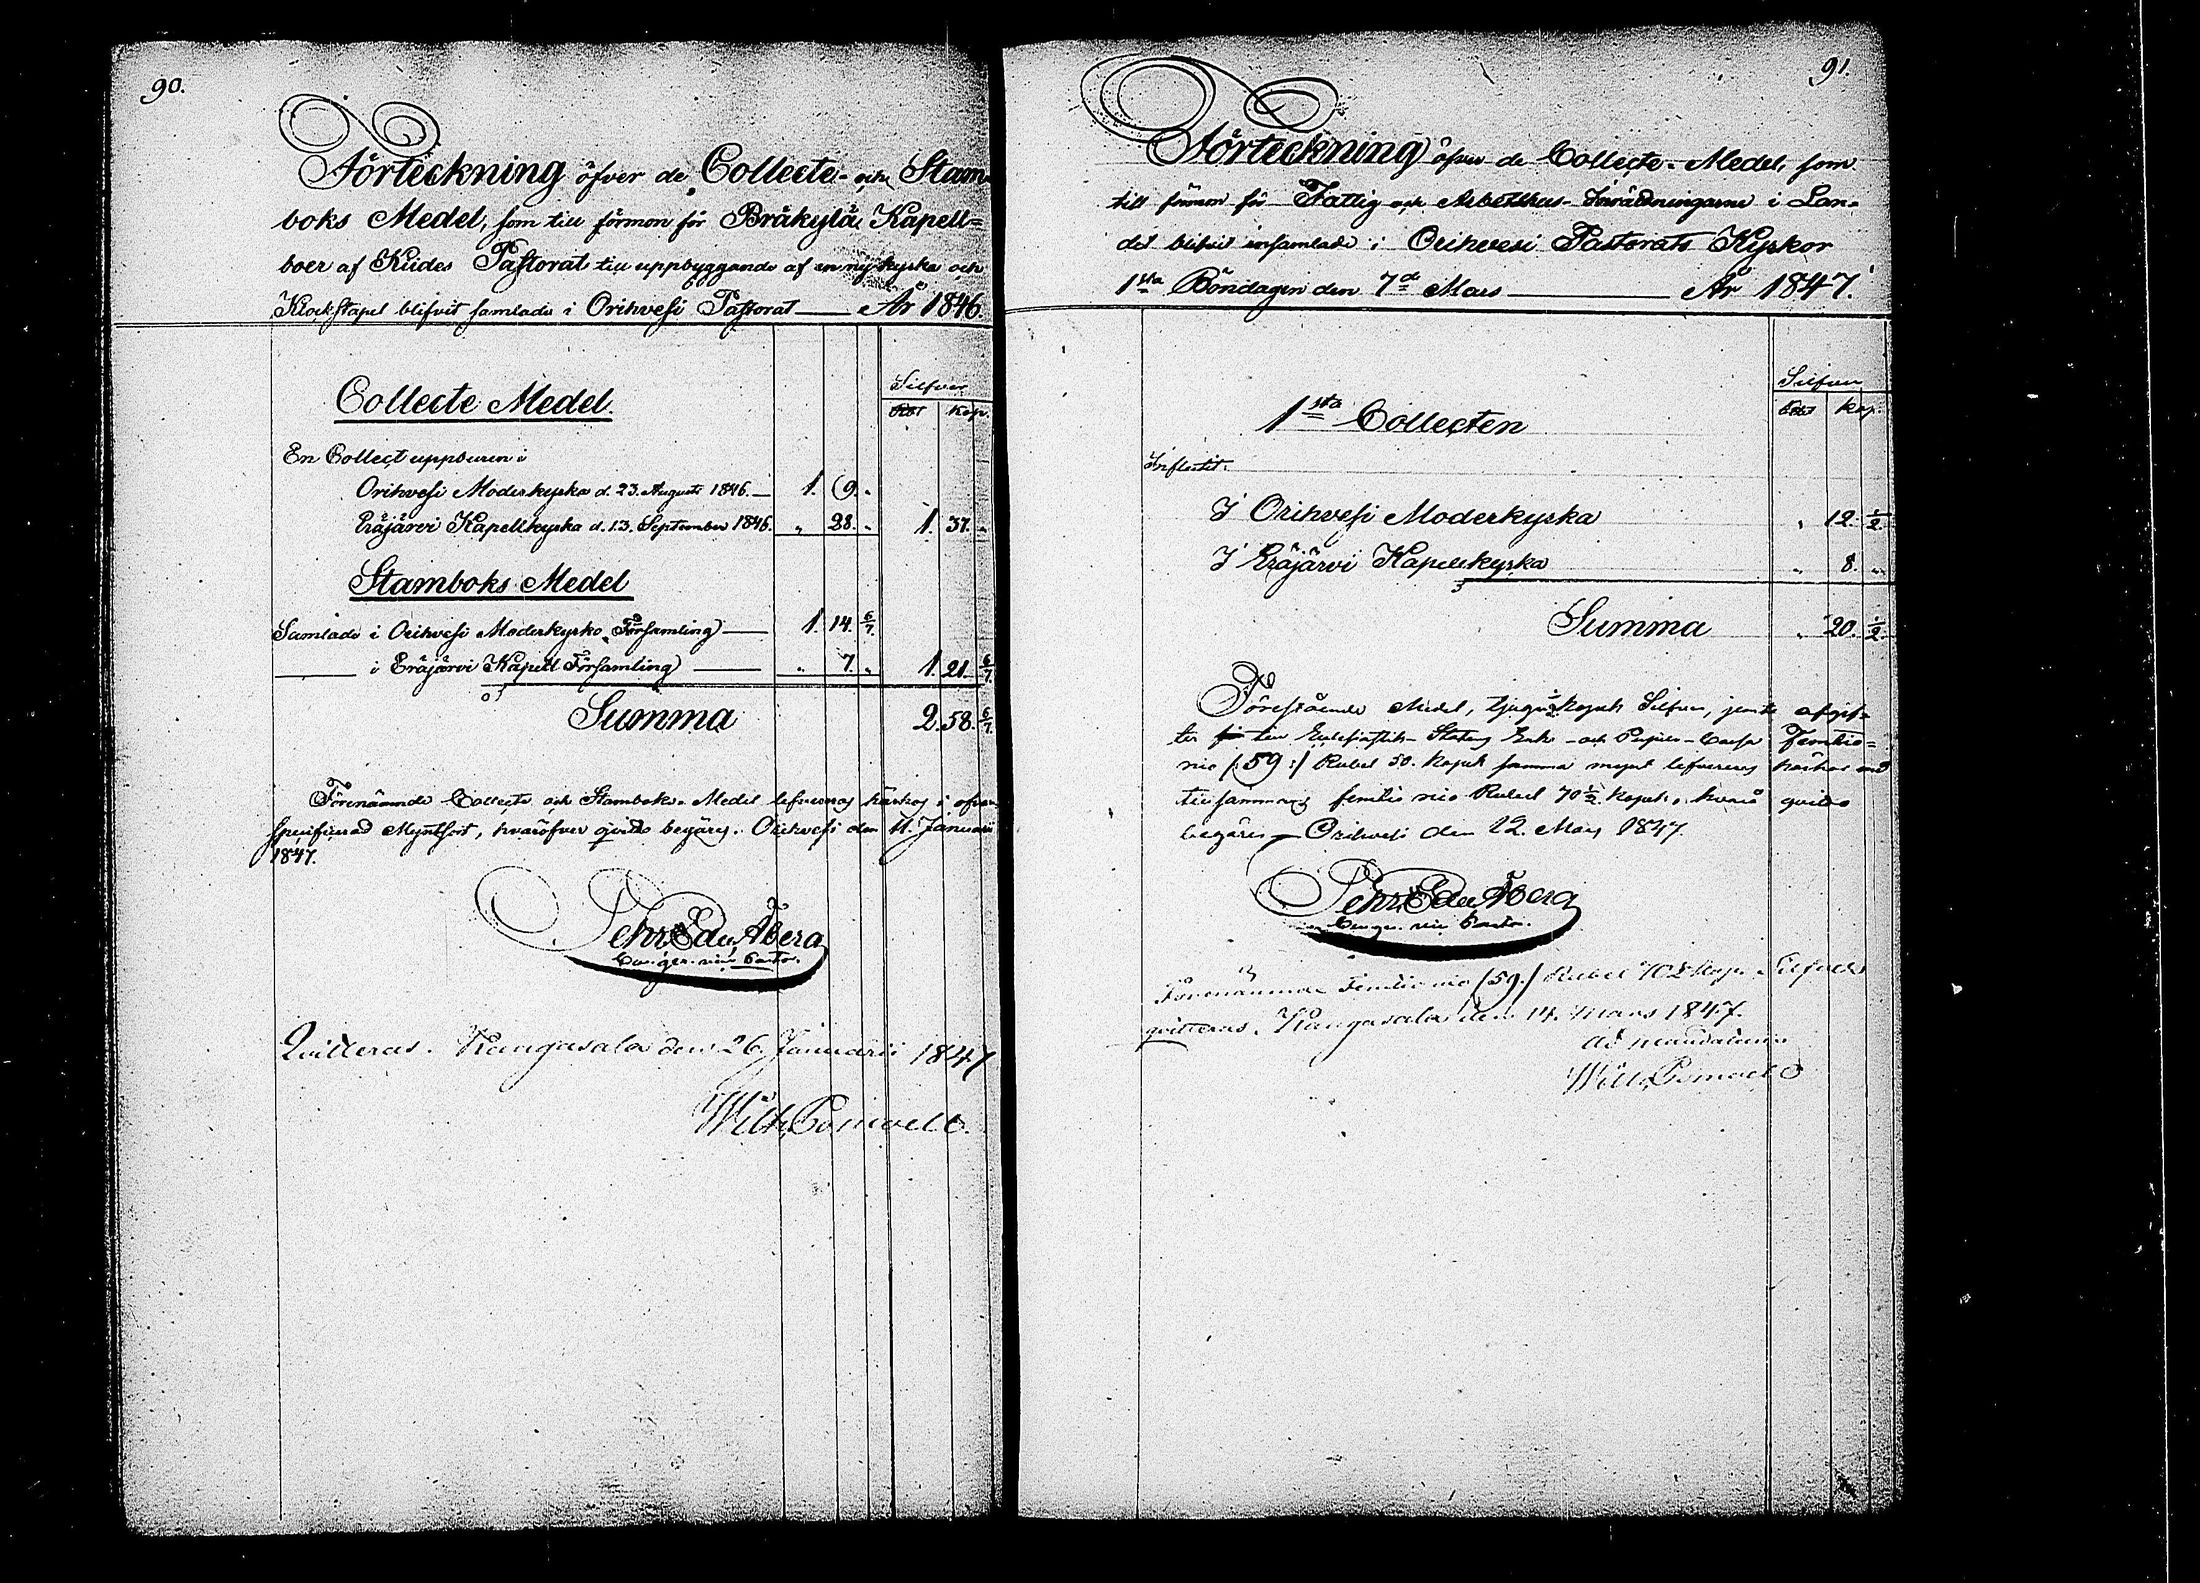 90.
Förteckning öfver de Collecte- och Stam-
boks Medel, som till förmon för Bråkylä Kapell=
boer af Kides Pastorat till uppbyggande af en ny kyrka och
Klockstapel blifvit samlade i Orihvesi Pastorat — År 1846.
Silfver
Rbl Kop.
Collecte Medel.
En Collect uppburen i
Orihvesi Moderkyrka d. 23. Augusti 1846. — 1. 9. „
Eräjärvi Kapellkyrka d. 13. September 1846. „ 28. „ 1. 37. „
Stamboks Medel
Samlade i Orihvesi Moderkyrko Församling — 1. 14. 6/7.
— i Eräjärvi Kapell Församling — „ 7. „ 1. 21. 6/7.
Summa 2. 58. 6/7.
Förenämnde Collecte och Stamboks Medel lefvereras härhos i ofvan
specificerad Myntsort, hvaröfver qvitto begäres. Orihvesi den 11. Januarii
1847.
Pehr Edv. Åberg
Qvitteras. Kangasala den 26. Januarii 1847
Wilh.
91.
Förteckning öfver de Collecte-Medel, som
till förmon för Fattig och Arbetshus-Inrättningarne i Lan-
det blifvit insamlade i Orihvesi Pastorats Kyrkor
1sta Böndagen den 7de Mars — År 1847.
Silfver
Rbl Kop.
1sta Collecten
Influtit.
I Orihvesi Moderkyrka „ 12. 1/2.
I Eräjärvi Kapellkyrka „ 8. „
Summa „ 20. 1/2.
Förestående Medel, tjugu 1/2 Kopek Silfver, jemte afgif=
ter till Ecclesiastik-Statens Enke- och Pupill-Cassa Femtio=
nio /:59:/ Rubel 50. Kopek samma mynt lefvereras härhos med
tillsammans femtio nio Rubel 70 1/2 Kopek, hvarå qvitto
begäres — Orihvesi den 12. Mars 1847.
Pehr Edv. Åberg
Förenämnde Femtio nio /59./ Rubel 70 1/2 Kop. Silfver
qvitteras. Kangasala den 14. Mars 1847.
Ad mandatum
Wilh.